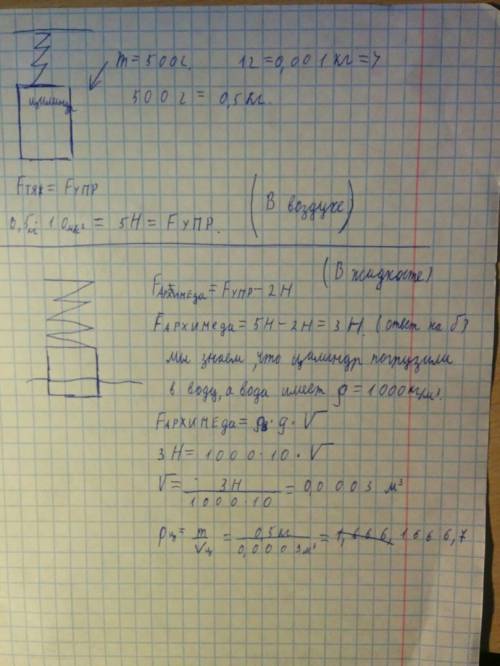 m = 500г. 1г = 0,001 кг =>
500г = 0,5 кг.
цилиндр
Fтяж = Fупр
0,5кг · 10м/с² = 5Н = Fупр.
(В воздухе)
(В жидкости)
Fархимеда = Fупр - 2Н
Fархимеда = 5Н - 2Н = 3Н. (ответ на б)
мы знаем, что цилиндр погрузили
в воду, а вода имеет ρ = 1000кг/м³.
Fархимеда = ρ · g · V
3Н = 1000 · 10 · V
V = 3Н / 1000 · 10 = 0,0003 м³
ρц = m / Vц = 0,5кг / 0,0003м³ = 1666,7